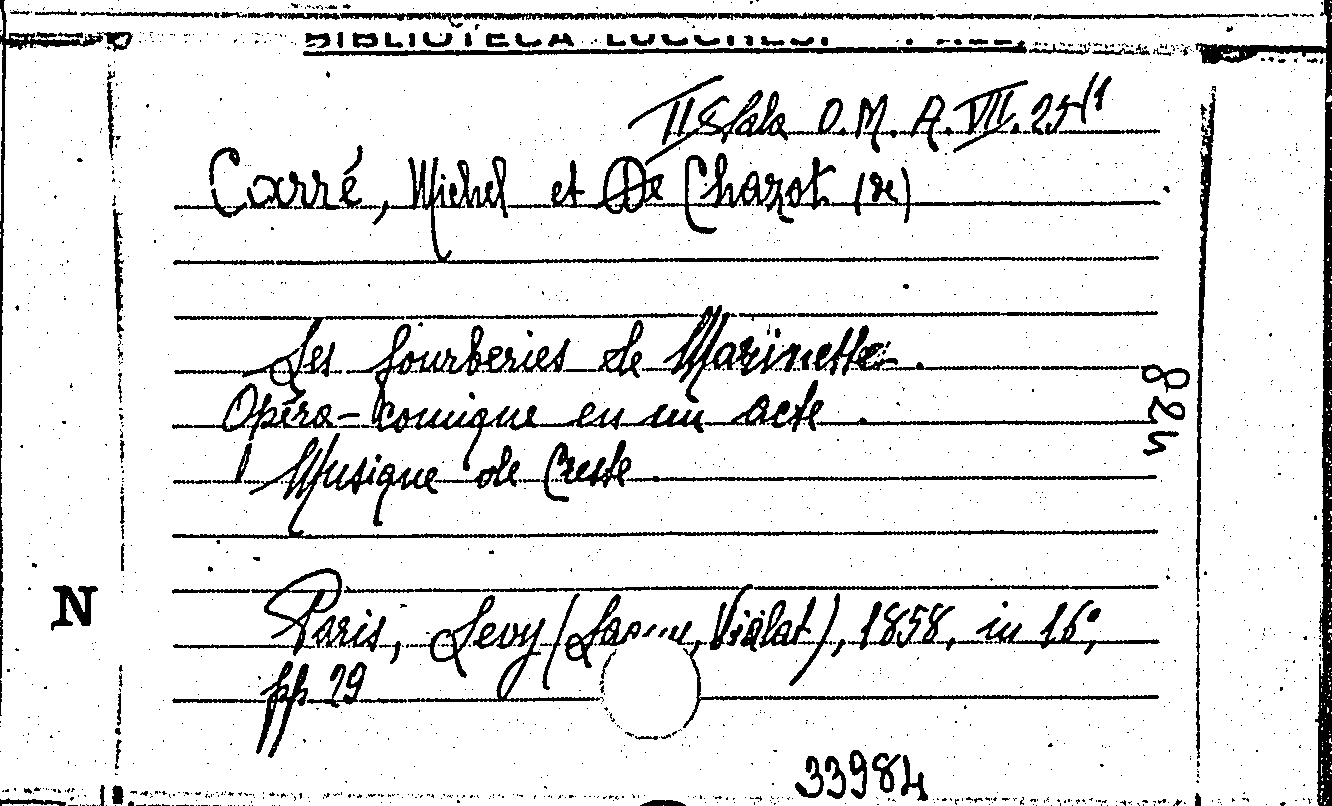 BIBLIOTECA LUCCHESI - PALLI
II Sala O. M. A. VII. 25/1
Carré, Michel et De Chazot (de)
Les fourberies de Marinette.
Opéra-comique en un acte.
Musique de Creste.
824
N
Paris, Levy (Lagny, Vialat), 1858, in 16°,
pp 29
33984